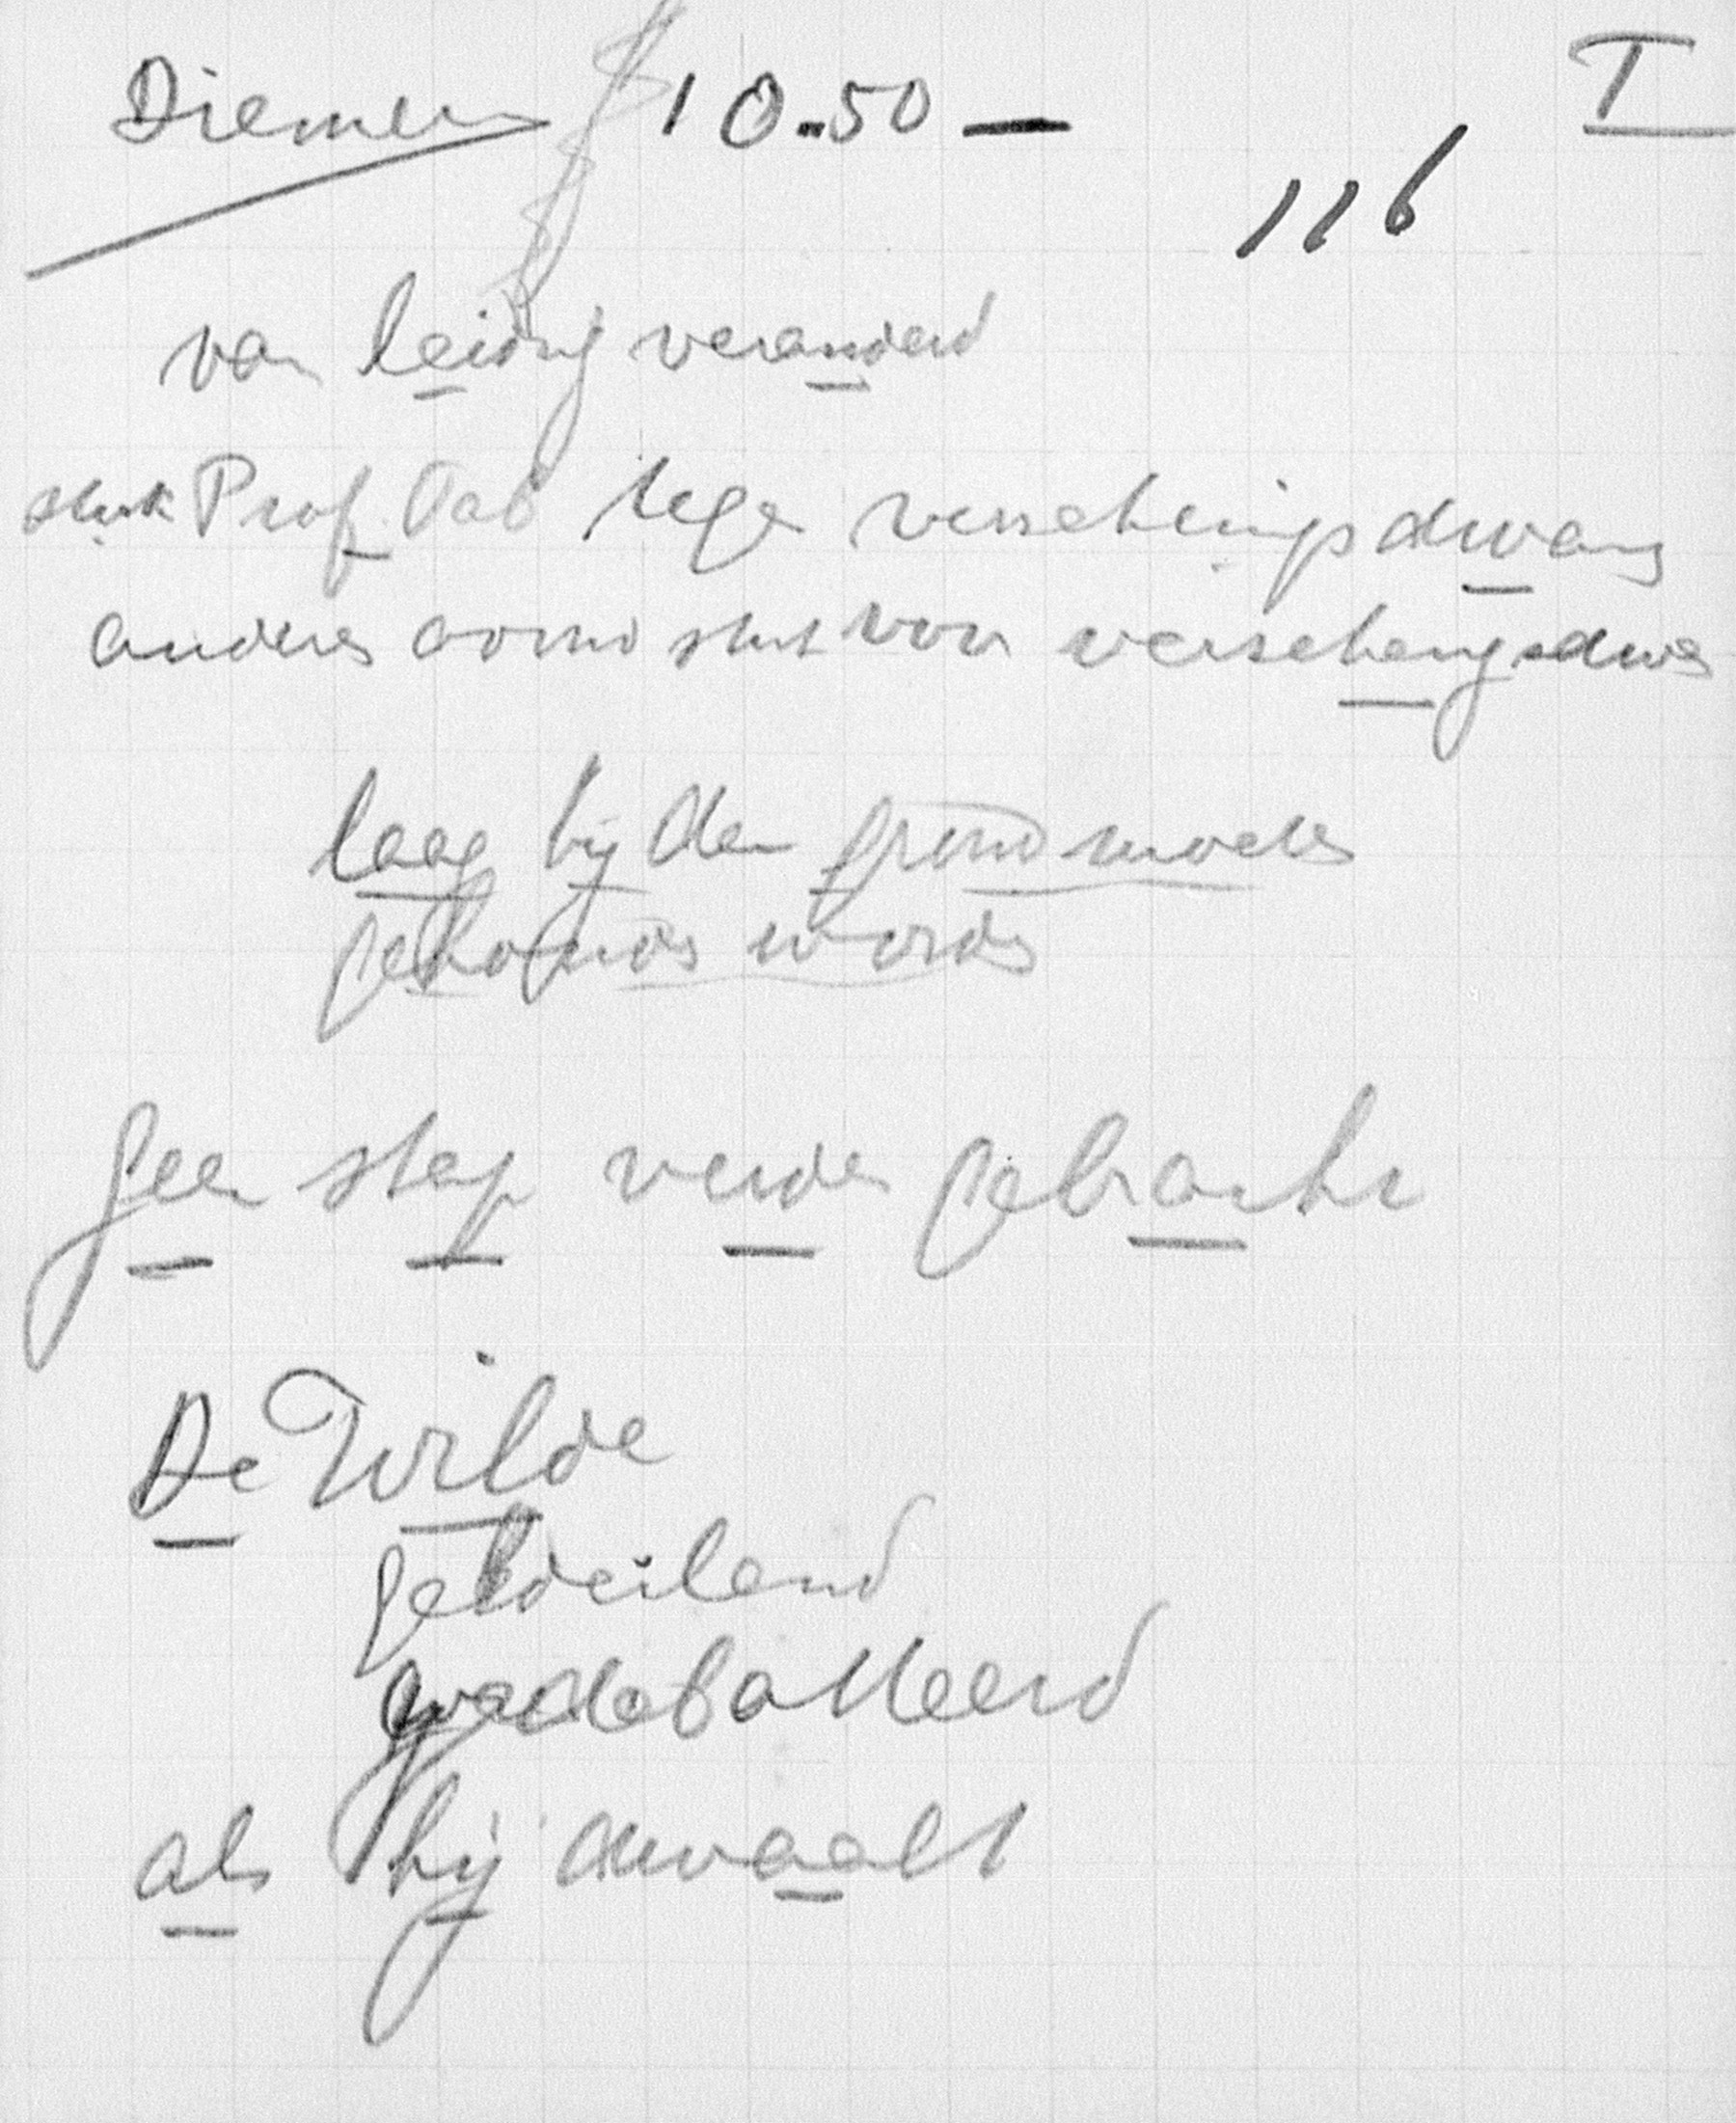 Diemen 10.50 — I
116
van leiding veranderd
stuk Prof. Oud tegen verschijningsdwang
anders avond stuk voor verschijningsdwang
laag bij den grond moeten
gehouden worden
Geen stap verder gebracht
De Wilde
gedeeld
gedebatteerd
als hij dwaalt